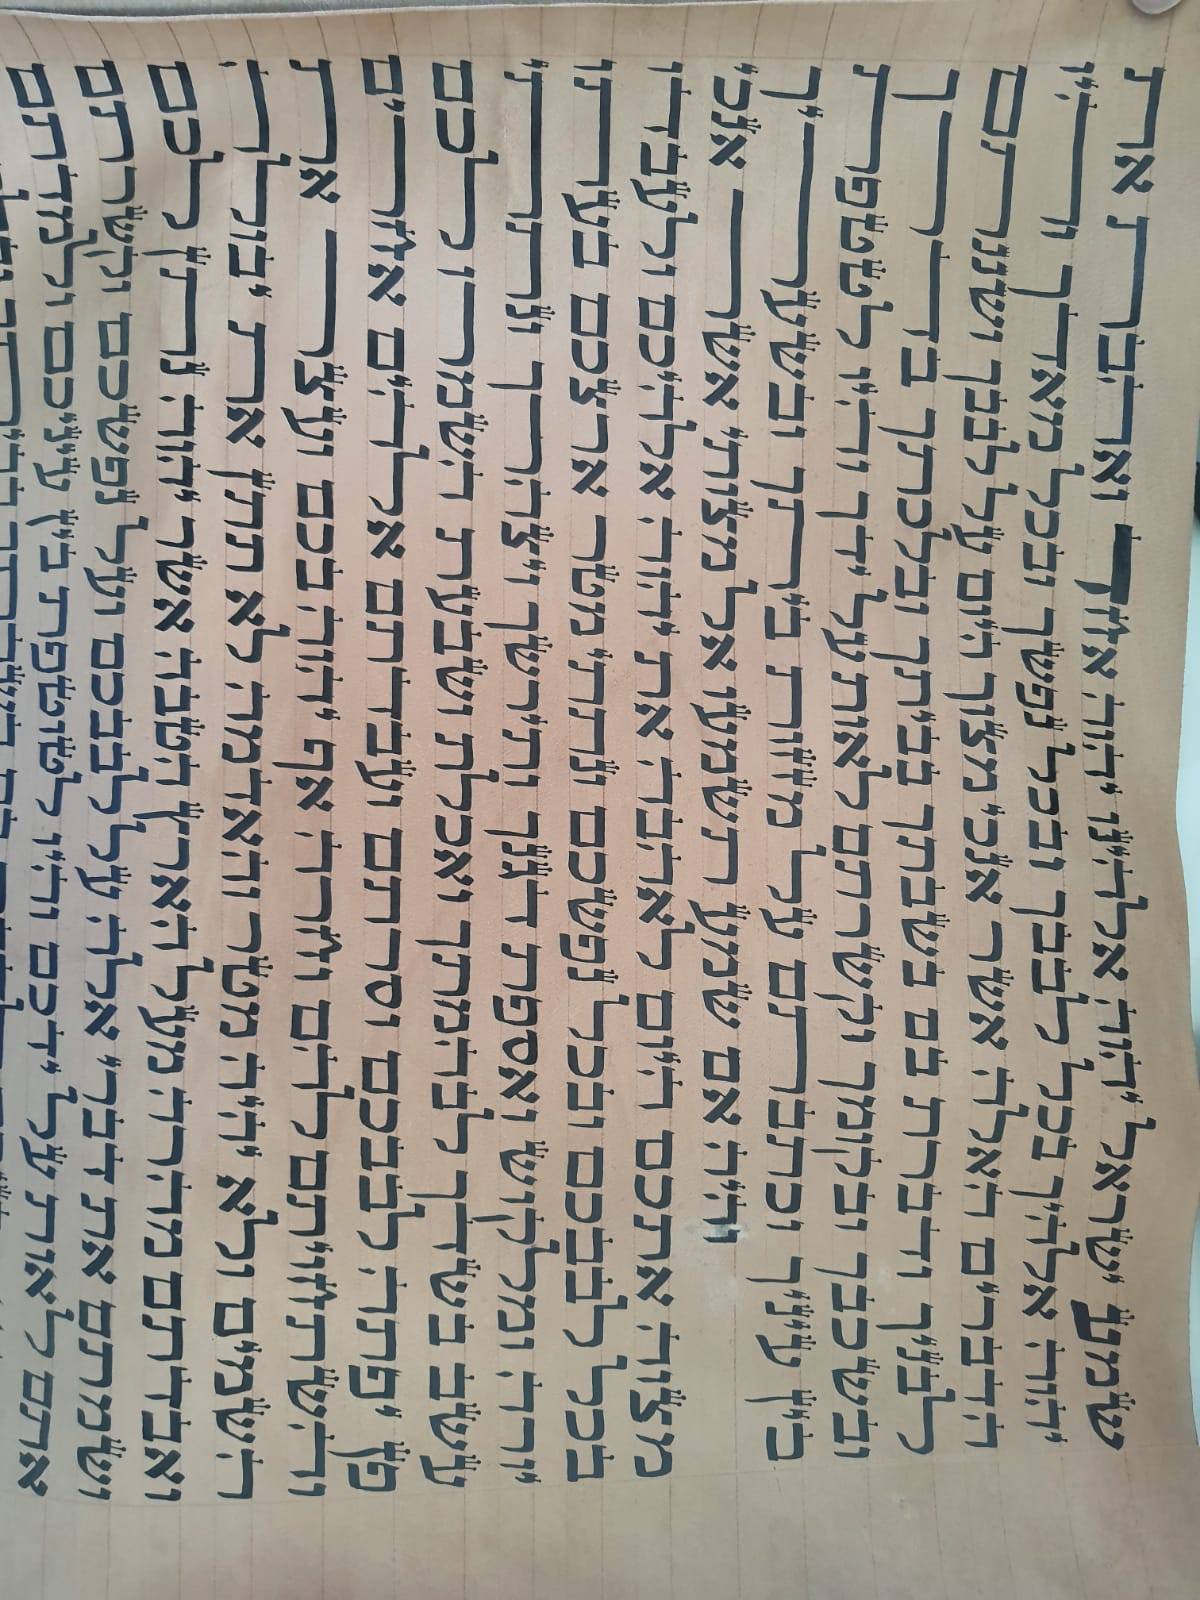 שמע ישראל יהוה אלהינו יהוה אחד ואהבת את
יהוה אלהיך בכל לבבך ובכל נפשך ובכל מאדך והיו
הדברים האלה אשר אנכי מצוך היום על לבבך ושננתם
לבניך ודברת בם בשבתך בביתך ובלכתך בדרך
ובשכבך ובקומך וקשרתם לאות על ידך והיו לטטפת
בין עיניך וכתבתם על מזוזת ביתך ובשעריך
והיה אם שמע תשמעו אל מצותי אשר אנכי
מצוה אתכם היום לאהבה את יהוה אלהיכם ולעבדו
בכל לבבכם ובכל נפשכם ונתתי מטר ארצכם בעתו
יורה ומלקוש ואספת דגנך ותירשך ויצהרך ונתתי
עשב בשדך לבהמתך ואכלת ושבעת השמרו לכם
פן יפתה לבבכם וסרתם ועבדתם אלהים אחרים
והשתחויתם להם וחרה אף יהוה בכם ועצר את
השמים ולא יהיה מטר והאדמה לא תתן את יבולה
ואבדתם מהרה מעל הארץ הטבה אשר יהוה נתן לכם
ושמתם את דברי אלה על לבבכם ועל נפשכם וקשרתם
אתם לאות על ידכם והיו לטוטפת בין עיניכם ולמדתם